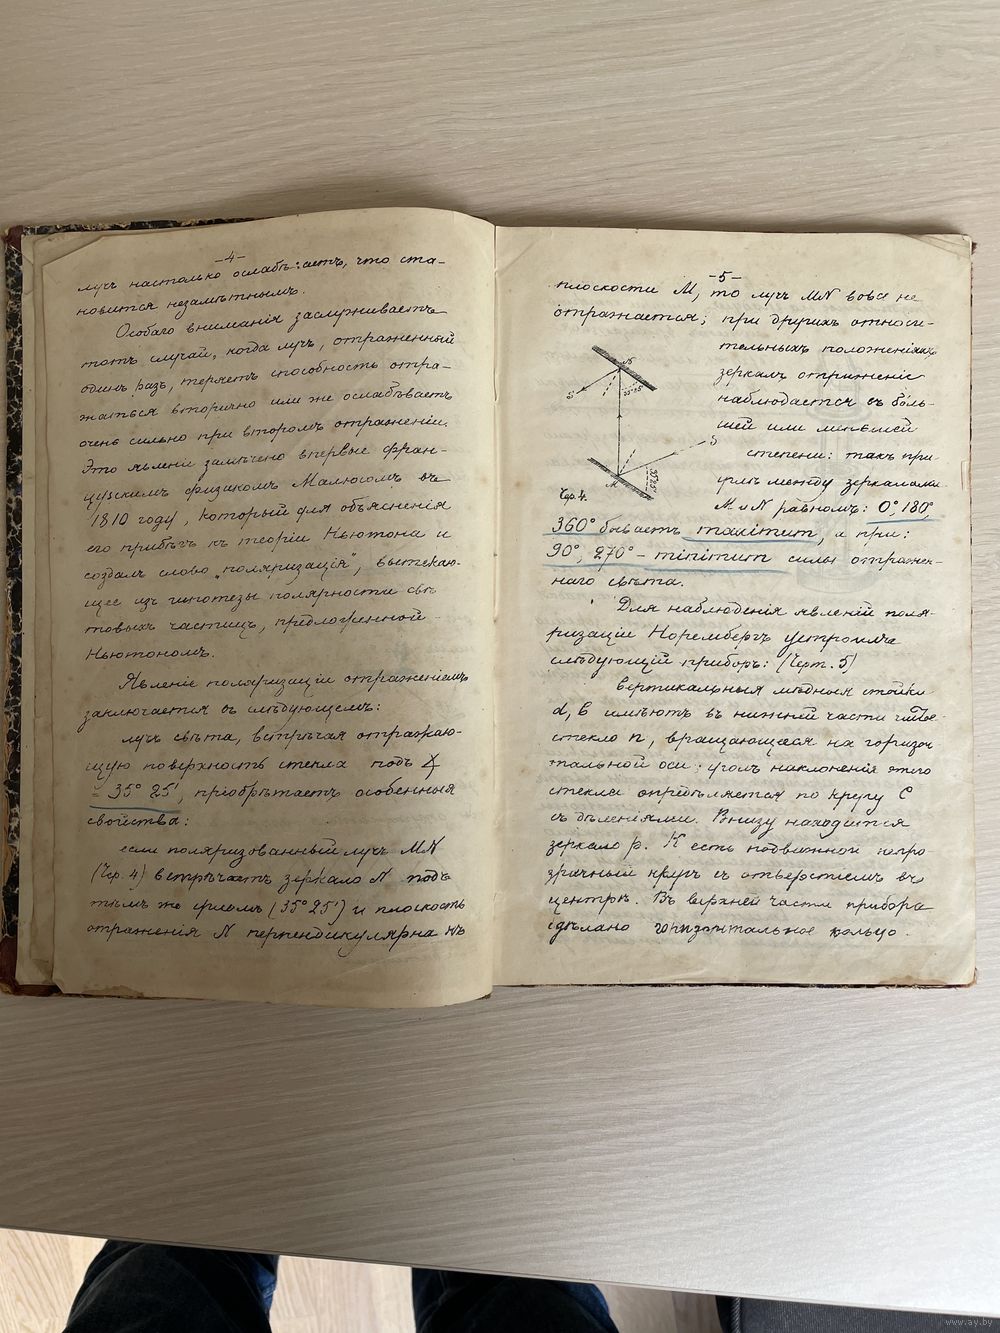 -4-
лучъ настолько ослабѣваетъ, что ста-
новится незамѣтнымъ.
Особаго вниманія заслуживаетъ
тотъ случай, когда лучъ, отраженный
одинъ разъ, теряетъ способность отра-
жаться вторично или же ослабѣваетъ
очень сильно при второмъ отраженіи.
Это явленіе замѣчено впервые фран-
цузскимъ физикомъ Малюсомъ въ
1810 году, который для объясненія
его прибѣгъ къ теоріи Ньютона и
создалъ слово „поляризація", вытекаю-
щее изъ гипотезы полярности свѣ-
товыхъ частицъ, предложенной
Ньютономъ.
Явленіе поляризаціи отраженіемъ
заключается въ слѣдующемъ:
лучъ свѣта, встрѣчая отражаю-
щую поверхность стекла подъ ∠
= 35° 25', пріобрѣтаетъ особенныя
свойства:
если поляризованный лучъ MN
(Чер. 4) встрѣчаетъ зеркало N подъ
тѣмъ же угломъ (35° 25') и плоскость
отраженія N перпендикулярна къ
-5-
плоскости M, то лучъ MN вовсе не
отражается; при другихъ относи-
тельныхъ положеніяхъ
зеркалъ отраженіе
наблюдается въ боль-
шей или меньшей
степени: такъ при
углѣ между зеркалами
M и N равномъ: 0°, 180°,
360° бываетъ maximum, а при:
90°, 270° - minimum силы отражен-
наго свѣта.
N
S
35° 25'
S
35° 25'
M
Чр. 4.
Для наблюденія явленій поля-
ризаціи Норембергъ устроилъ
слѣдующій приборъ: (Черт. 5)
вертикальныя мѣдныя стойки
d, b имѣютъ въ нижней части
стекло n, вращающееся на горизон
тальной оси; уголъ наклоненія этого
стекла опредѣляется по кругу C
съ дѣленіями. Внизу находится
зеркало p. K есть подвижной непро
зрачный кругъ съ отверстіемъ въ
центрѣ. Въ верхней части прибора
сдѣлано горизонтальное кольцо.
www.ay.by